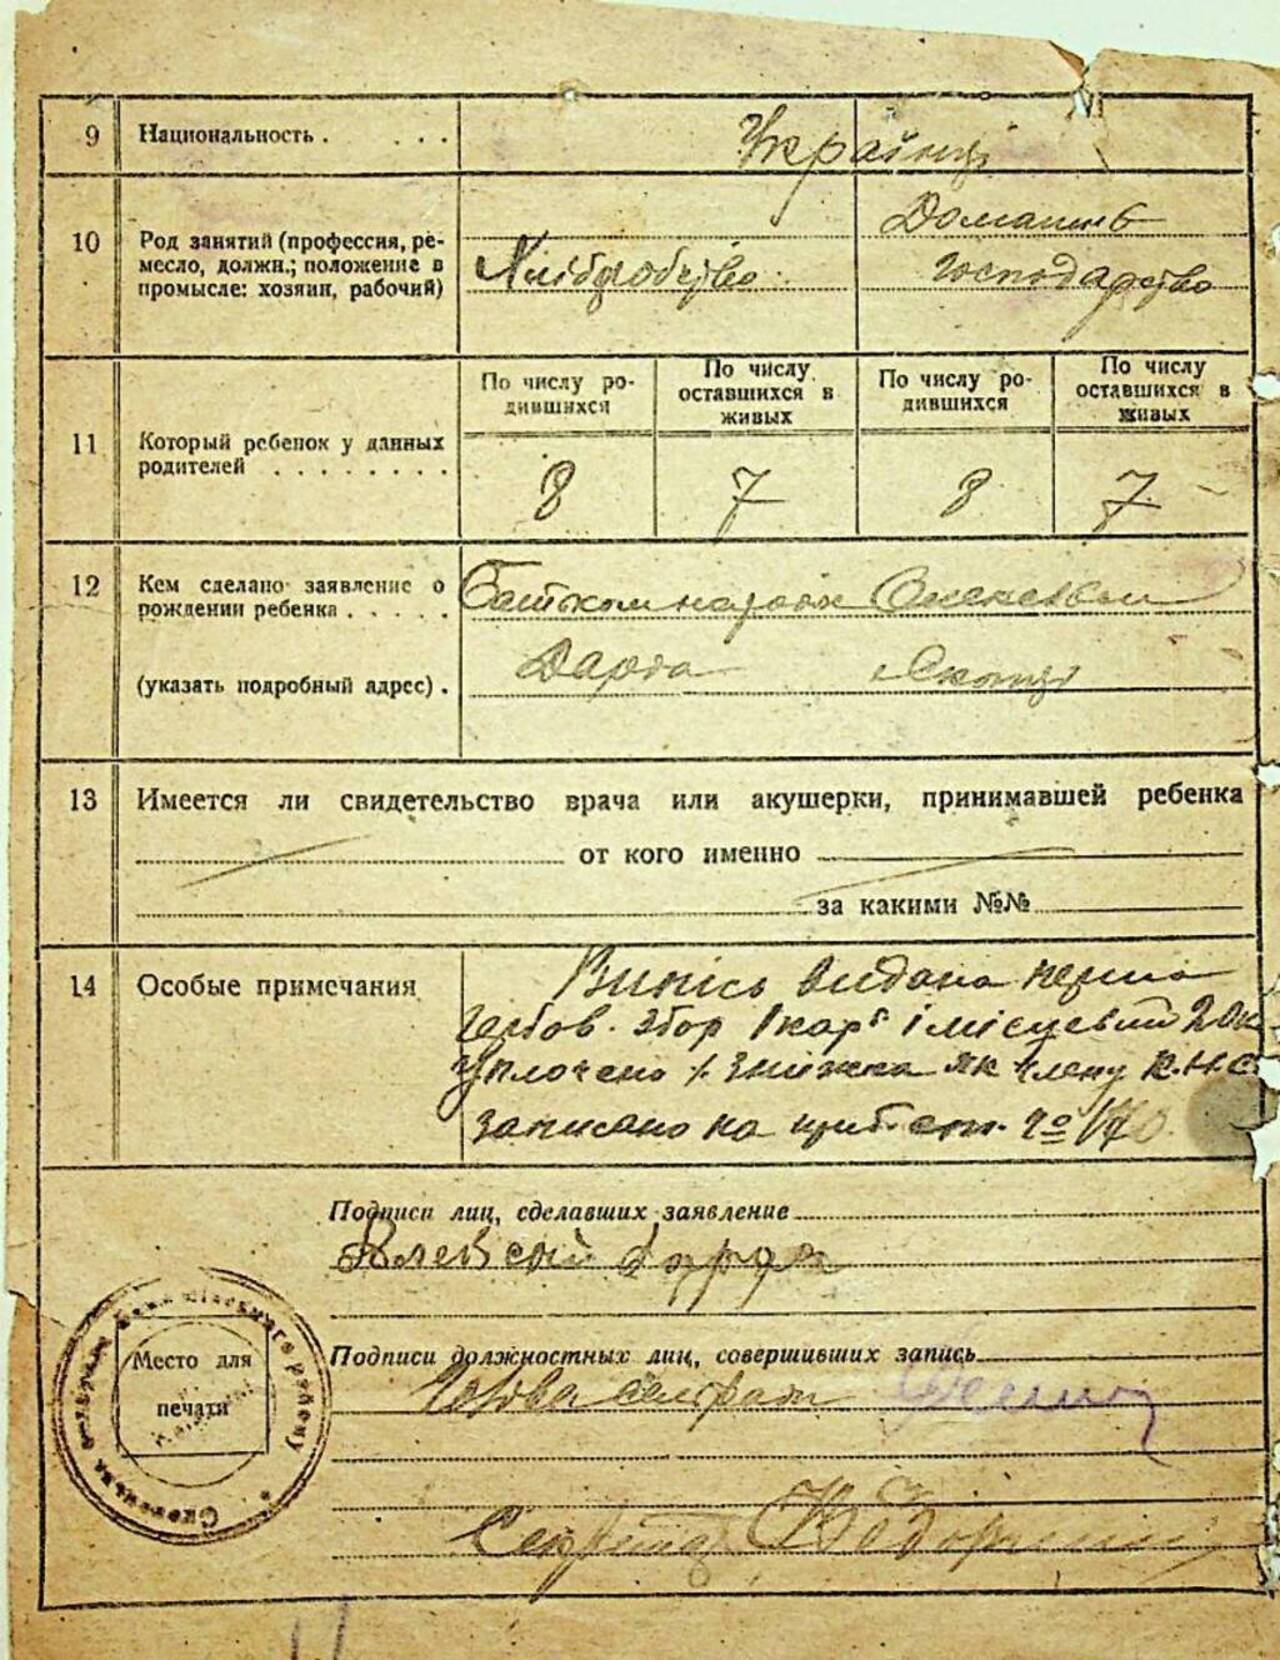 9 Национальность . . . . Українці
10 Род занятий (профессия, ре-
месло, должн.; положение в
промысле: хозяин, рабочий)
Хліборобство
Домашнє
господарство
11 Который ребенок у данных
родителей . . . . . . . .
По числу ро-
дившихся
По числу
оставшихся в
живых
По числу ро-
дившихся
По числу
оставшихся в
живых
8 7 8 7
12 Кем сделано заявление о
рождении ребенка . . . . .
(указать подробный адрес) .
Батьком
13 Имеется ли свидетельство врача или акушерки, принимавшей ребенка
от кого именно
за какими №№
14 Особые примечания
Випісь видана перша
збор 1 кар і місцевий 20к
Уплочено знижка як члену К.Н.С.
записано на
Подписи лиц, сделавших заявление
Место для
печати
Подписи должностных лиц, совершивших запись
Голова сельради
Секретар